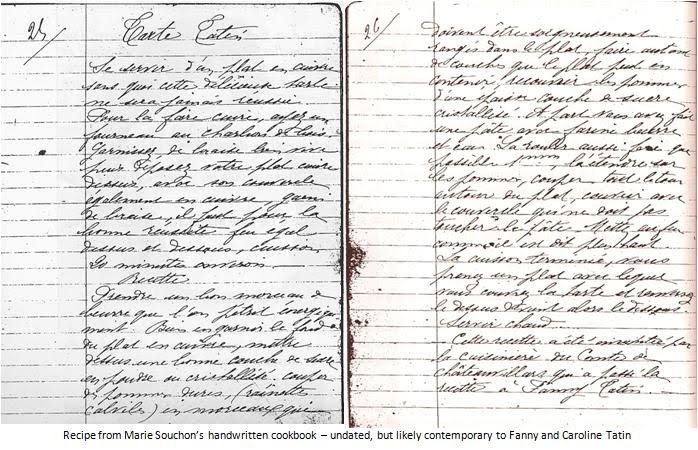 25/
Tarte Tatin
Se servir d'un plat en cuivre
sans quoi cette délicieuse tarte
ne sera jamais réussie.
Pour la faire cuire, avoir un
fourneau au charbon de bois
Garnissez de braise bien vive
pour déposer votre plat cuivre
dessus, avec son couvercle
également en cuivre, garni
de braise, il faut pour la
bonne réussite feu égal
dessus et dessous, cuisson
20 minutes environ.
Recette
Prendre un bon morceau de
beurre que l'on pétrit
Bien en garnir le fond
du plat en cuivre, mettre
dessus une bonne couche de sucre
en poudre ou cristallisé couper
des pommes dures, (rainettes
calvilles) en morceaux qui
26/
doivent être soigneusement
rangés dans le plat, faire autant
de couches que le plat peut en
contenir, recouvrir les pommes
d'une épaisse couche de sucre
cristallisé. A part vous avez fait
une pâte avec farine beurre
et eau. La rouler aussi fine que
possible l'étendre sur
les pommes, couper tout le tour
autour du plat, couvrir avec
le couvercle qui ne doit pas
toucher la pâte. Mettre au feu
comme il est dit plus haut.
La cuisson terminée, vous
prenez un plat avec lequel
vous couvrez la tarte et renversez
le dessus devient alors le dessous
Servir chaud.
Cette recette a été inventée par
la cuisinière du Comte de
Châteauvillars qui a passé la
recette à Fanny Tatin.
Recipe from Marie Souchon's handwritten cookbook – undated, but likely contemporary to Fanny and Caroline Tatin